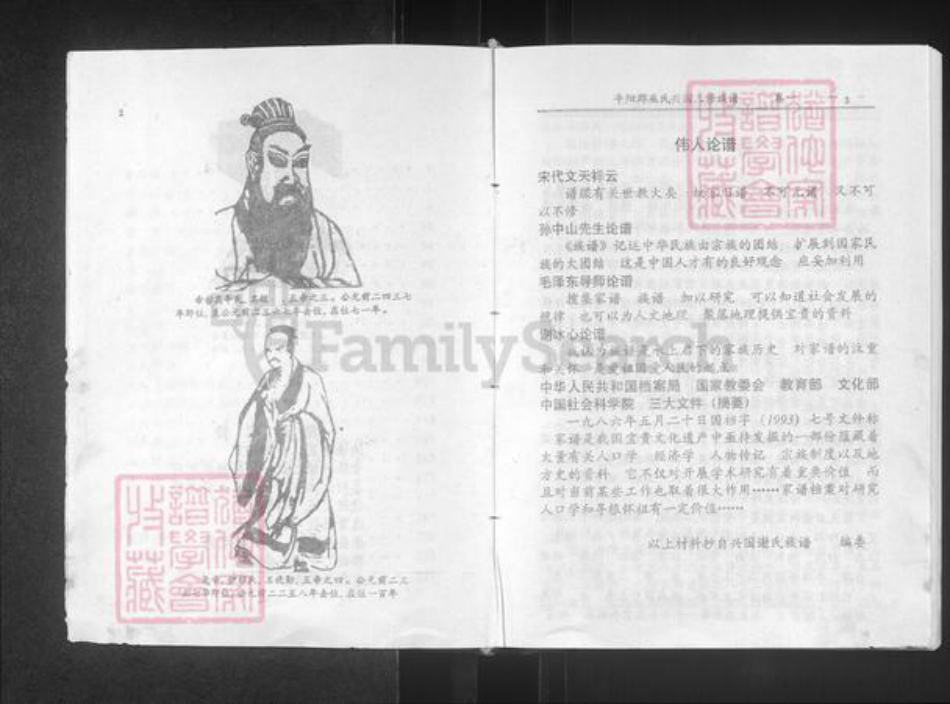 2
帝喾高辛氏，
五帝之三。公元前二四三七
年即位，至公元前二三六七年去位，在位七一年。
五帝之四。公元前二三
公元前二二五八年去位，在位一百年
3
伟人论谱
宋代文天祥云
谱牒有关世教大矣
不可无谱 又不可
以不修
孙中山先生论谱
《族谱》记述中华民族由宗族的团结 扩展到国家民
族的大团结 这是中国人才有的良好观念 应妥加利用
毛泽东导师论谱
搜集家谱 族谱 加以研究 可以知道社会发展的
规律 也可以为人文地理 聚落地理提供宝贵的资料
谢冰心论谱
家族历史 对家谱的注重
和关怀
中华人民共和国档案局 国家教委会 教育部 文化部
中国社会科学院 三大文件（摘要）
一九八六年五月二十日国档字（1993）七号文件称
家谱是我国宝贵文化遗产中亟待发掘的一部份蕴藏着
大量有关人口学 经济学 人物传记 宗族制度以及地
方史的资料 它不仅对开展学术研究有着重要价值 而
且对当前某些工作也取着很大作用……家谱档案对研究
人口学和寻根怀祖有一定价值……
以上材料抄自兴国谢氏族谱 编委
FamilySearch